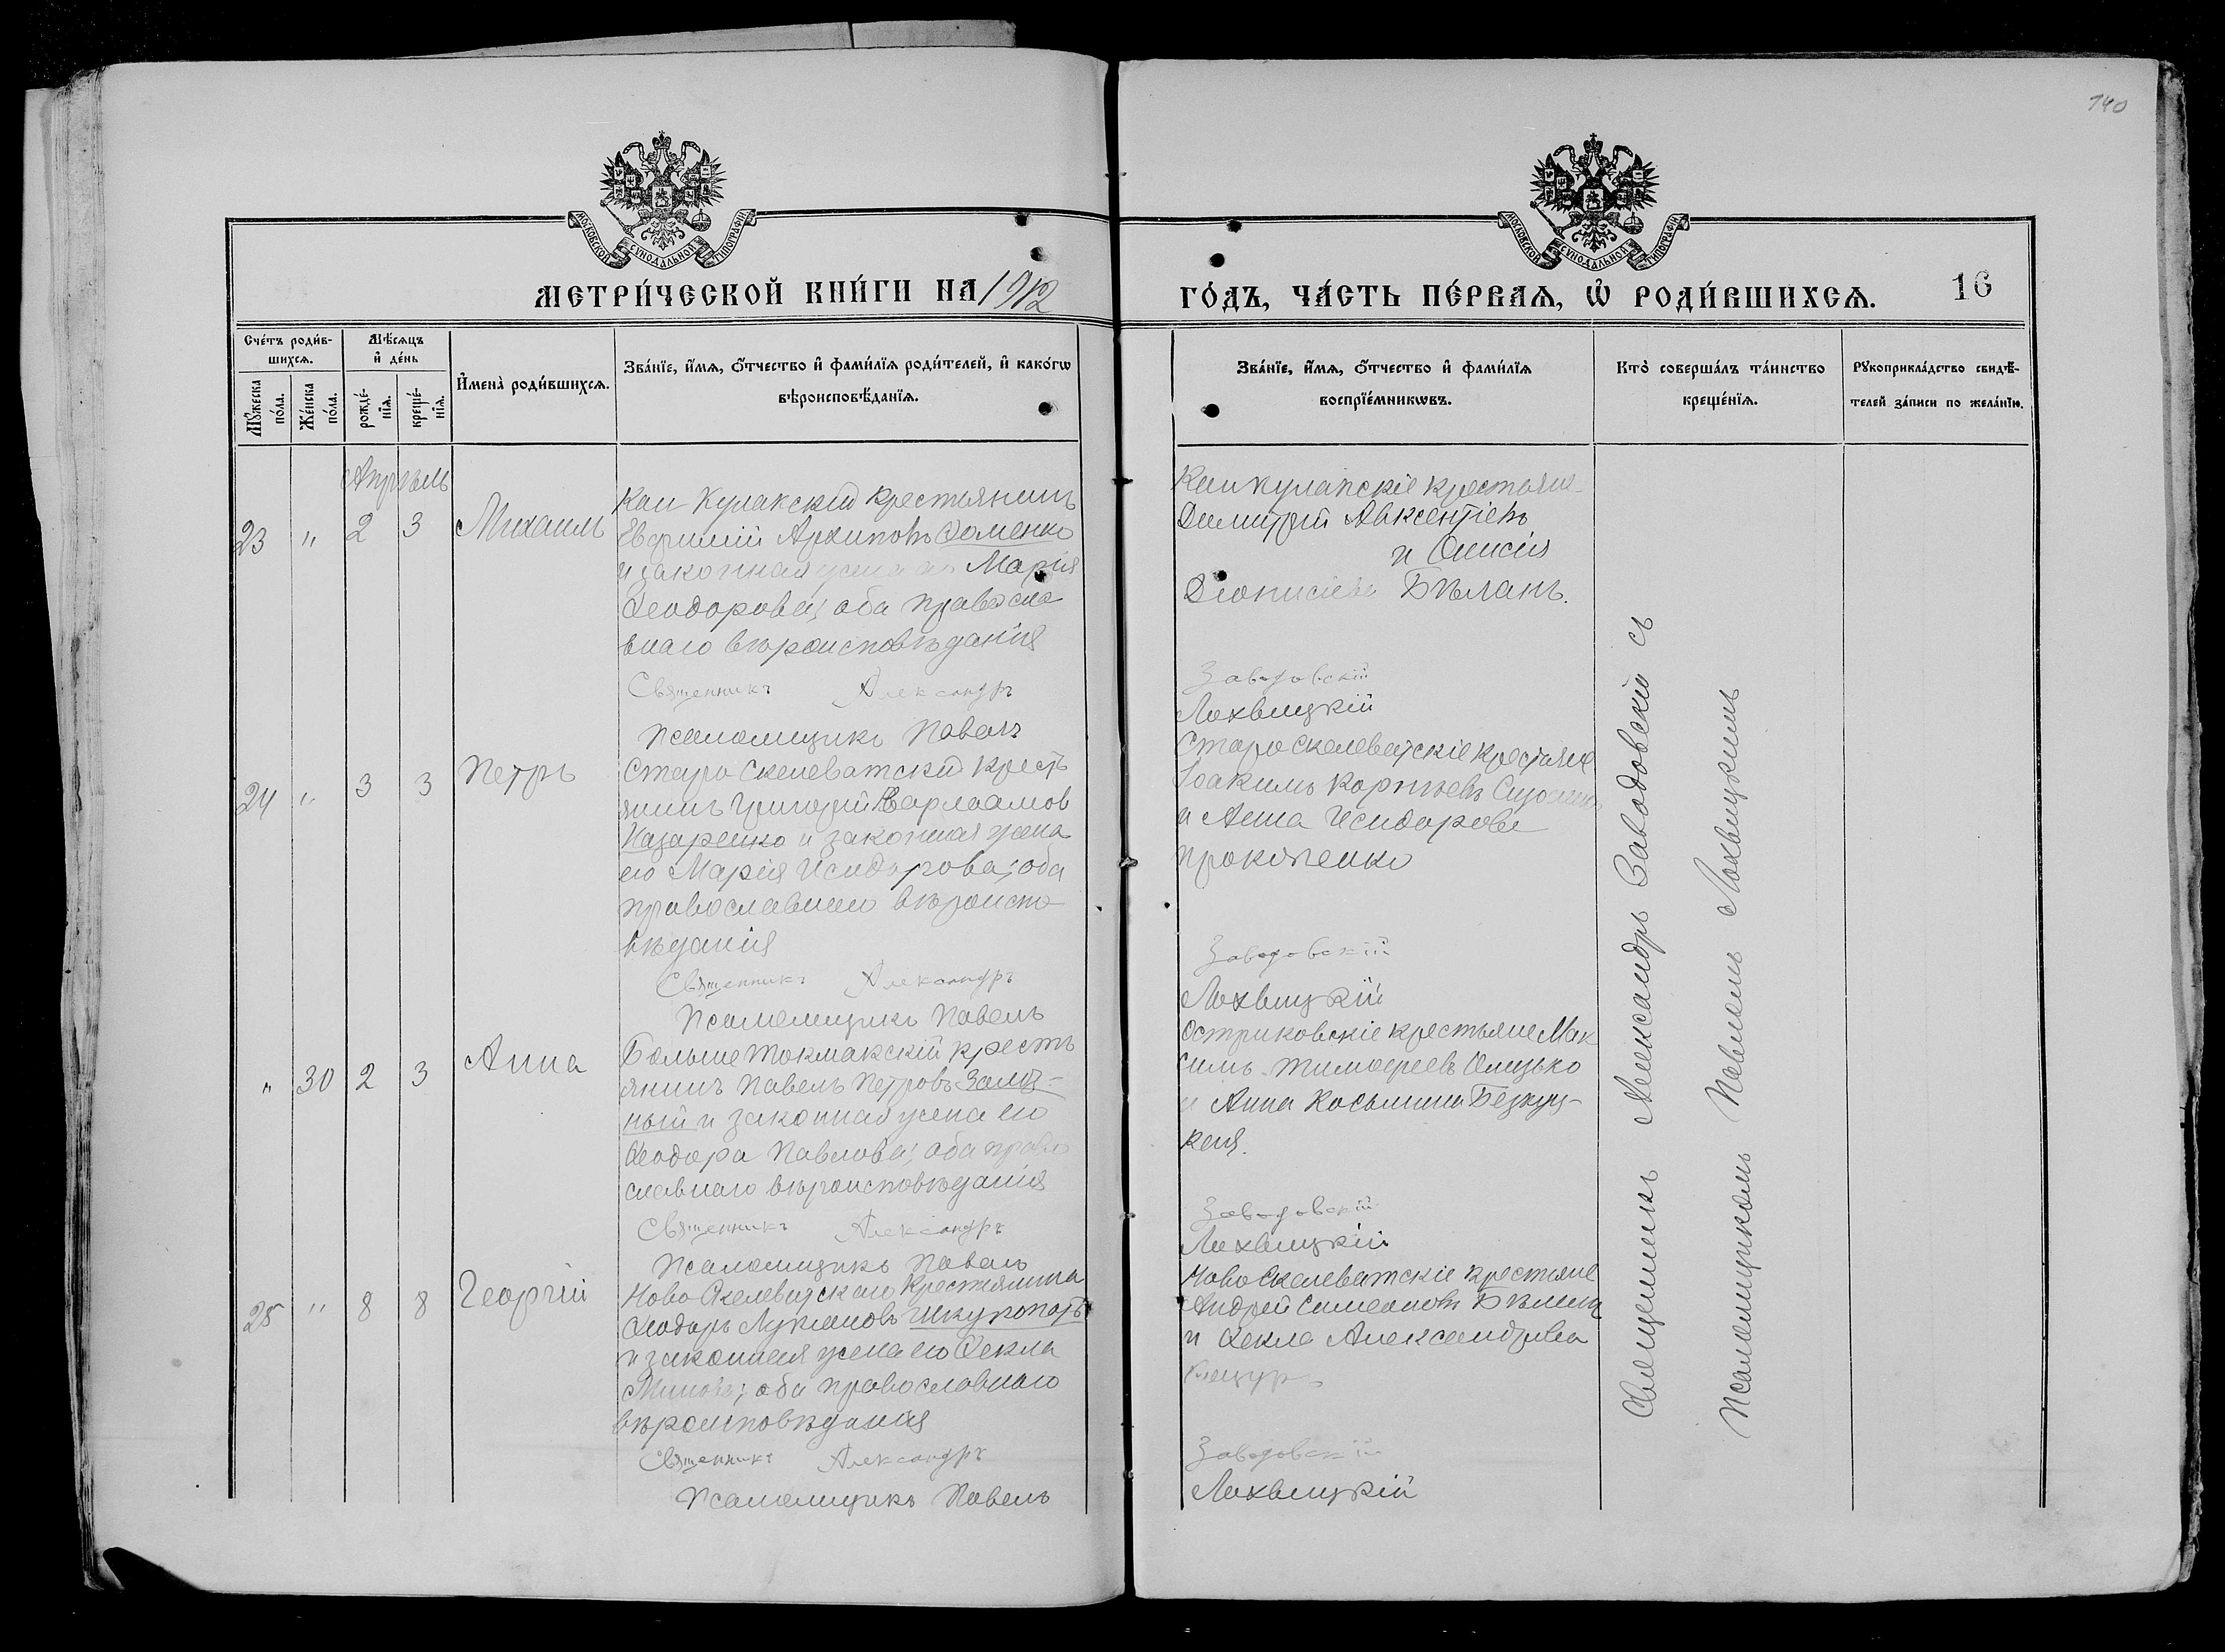 140
МОСКОВСКОЙ СѴНОДАЛЬНОЙ ТИПОГРАФІИ
МОСКОВСКОЙ СѴНОДАЛЬНОЙ ТИПОГРАФІИ
МЕТРИ́ЧЕСКОЙ КНИ́ГИ НА 1912
ГО́ДЪ, ЧА́СТЬ ПЕ́РВАѦ, Ѡ҆ РОДИ́ВШИХСѦ.
16
Сче́тъ роди́в-
шихсѧ.
Мꙋ́жеска по́ла.
Же́нска по́ла.
Мѣ́сѧцъ
и҆ де́нь
рожде́-нїѧ.
креще́-нїѧ.
И҆мена̀ роди́вшихсѧ.
Зва́нїе, и҆́мѧ, ѻ҆́тчество и҆ фами́лїѧ роди́телей, и҆ како́гѡ
вѣроисповѣ́данїѧ.
Зва́нїе, и҆́мѧ, ѻ҆́тчество и҆ фами́лїѧ
воспрїе́мникѡвъ.
Кто̀ соверша́лъ та́инство
креще́нїѧ.
Рꙋкоприкла́дство свидѣ́-
телей за́писи по жела́нїю.
Апрѣль
23 " 2 3 Михаилъ
Каи Кулакский крестьянинъ
Евфимій Архиповъ Фоменко
и законная жена его Марія
Феодорова; оба правосла
внаго вѣроисповѣданія
Священникъ Александръ
Псаломщикъ Павелъ
Каикулакскіе крестьяне
Димитрій Авксентіевъ
и Анисія
Діонисіева Бѣланъ.
Заводовскій
Лохвицкій
24 " 3 3 Петръ
Старо Скелеватский кресть
янинъ Григорій Варлаамов
Назаренко и законная жена
его Марія Исидорова; оба
православнаго вѣроиспо
вѣданія
Священникъ Александръ
Псаломщикъ Павелъ
Старо Скелеватскіе крестьяне
Іоакимъ Корнѣевъ
и Анна Исидорова
Прокопенко
Заводовскій
Лохвицкій
" 30 2 3 Анна
Больше Токмакскій кресть
янинъ Павелъ Петровъ Зализ-
ный и законная жена его
Феодора Павлова; оба право
славнаго вѣроисповѣданія
Священникъ Александръ
Псаломщикъ Павелъ
Остриковскіе крестьяне Мак
симъ Тимофеевъ
и Анна Косьмина
Заводовскій
Лохвицкій
25 " 8 8 Георгій
Ново Скелеватскаго крестьянина
Феодоръ Лукіановъ Шкуропатъ
и законная жена его Фекла
Минова; оба православнаго
вѣроисповѣданія
Священникъ Александръ
Псаломщикъ Павелъ
Ново Скелеватскіе крестьяне
Андрей Симеоновъ
и Фекла Александрова
Заводовскій
Лохвицкій
Священникъ Александръ Заводовскій съ
Псаломщикомъ Павломъ Лохвицкимъ